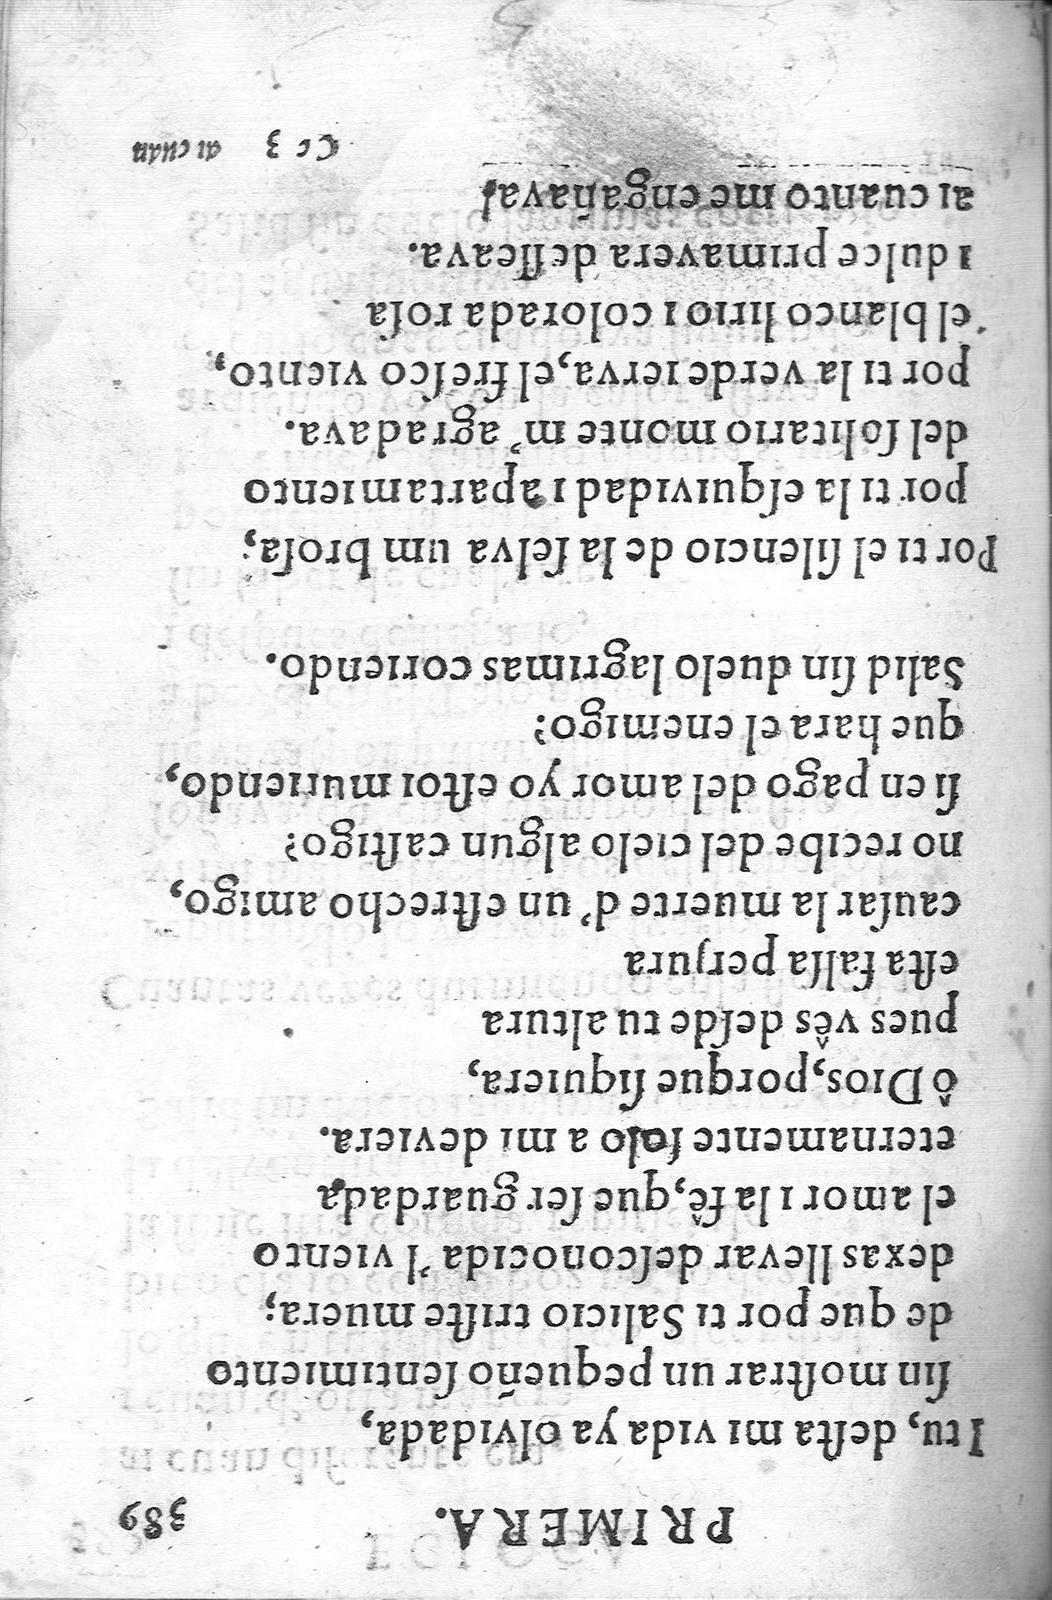 PRIMERA. 389
I tu, desta mi vida ya olvidada,
ſin moſtrar un pequeño ſentimiento
de que por ti Salicio triſte muera;
dexas llevar deſconocida 'l viento
el amor i la fê, que ſer guardada
eternamente ſolo a mi deviera.
ô Dios, porque ſiquiera,
pues vês deſde tu altura
eſta falſa perjura
cauſar la muerte d' un eſtrecho amigo,
no recibe del cielo algun caſtigo?
ſi en pago del amor yo eſtoi muriendo,
que hara el enemigo?
Salid ſin duelo lagrimas coriendo.
Por ti el ſilencio de la ſelva umbroſa;
por ti la eſquividad i apartamiento
del ſolitario monte m' agradava.
por ti la verde ierva, el freſco viento,
el blanco lirio i colorada roſa
i dulce primavera deſſeava.
ai cuanto me engañava!
Cc 3 ai cuán